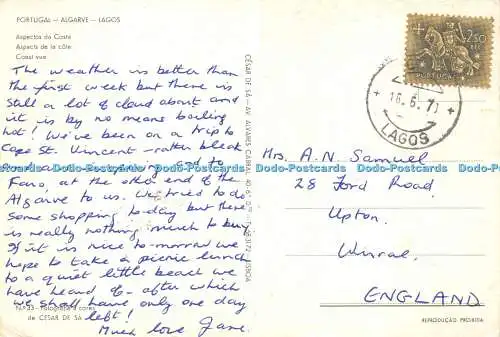 PORTUGAL — ALGARVE — LAGOS
Aspectos da Costa
Aspects de la côte
Coast vue
The weather is better than
the first week but there is
still a lot of cloud about and
it is by no means boiling
hot! We've been on a trip to
Cape St. Vincent - rather bleak
and to
Faro, at the other end of the
Algarve to us. We tried to do
some shopping to-day but there
is really nothing much to buy
If it is nice to-morrow we
hope to take a picnic lunch
to a quiet little beach we
have heard of - after which
we shall have only one day
left!
Much love Jane.
N.º 23 - Fotografia a cores
de CESAR DE SÁ
CÉSAR DE SÁ — AV. ALVARES CABRAL, 40, 6.º LISBOA
2$50
PORTUGAL
16.6.71
LAGOS
Mrs. A. N. Samuel
28 Ford Road,
Upton,
Wirral.
ENGLAND
REPRODUÇÃO PROIBIDA
Dodo-Postcards Dodo-Postcards Dodo-Postcards Dodo-Postcards Dodo-Postcards